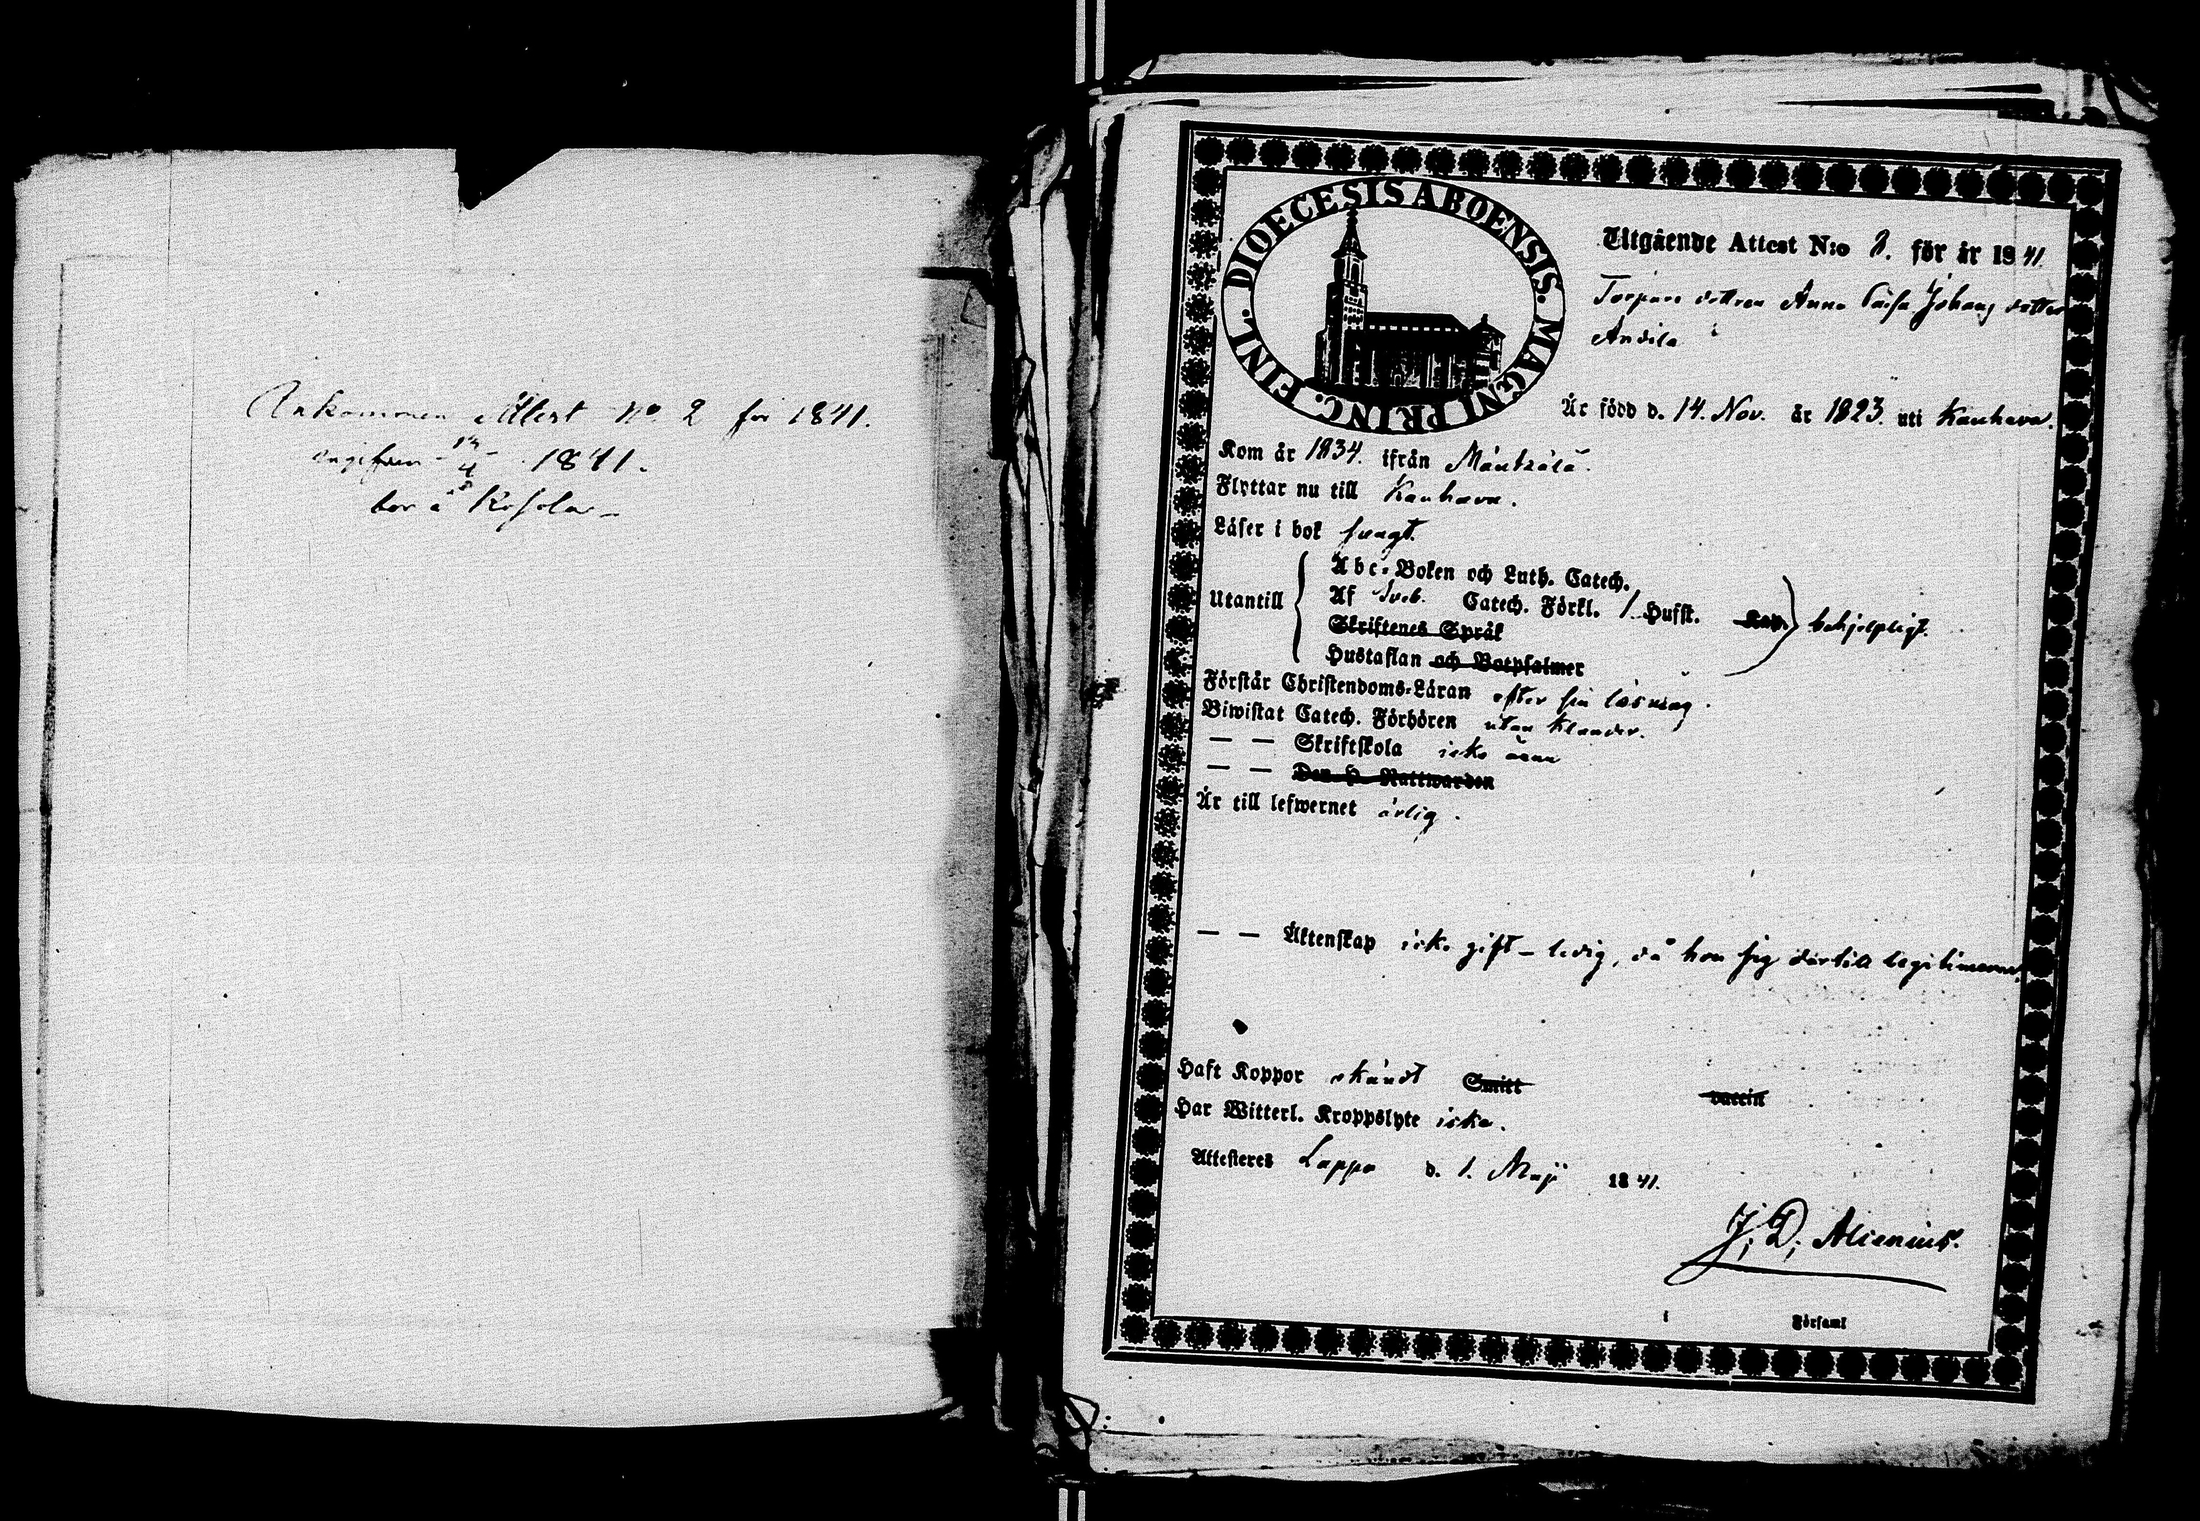 Ankommen Attest No 2 för 1841.
1841.
bor å
DIOECESIS ABOENSIS. MAGNI PRINC. FINL.
Utgående Attest N:o 8. för år 1841.
Torpare dottren Anna Caisa Johans dotter
Andila
Är född d. 14. Nov. år 1823. uti Kauhava.
Kom år 1834. ifrån Mäntzälä.
Flyttar nu till Kauhava.
Läser i bok svagt.
Abc-Boken och Luth. Catech.
Utantill Af Sveb. Catech. Förkl. 1. Hufst. Kap. behjelpligt.
Skriftenes Språk
Hustaflan och Botpsalmer
Förstår Christendoms-Läran efter sin läsning.
Biwistat Catech. Förhören utan klander.
— — Skriftskola icke ännu
— — Den H. Nattwarden
Är till lefwernet ärlig.
— — Äktenskap icke gift - ledig, då hon sig dertill legitimerar.
Haft Koppor okändt Smitt vaccin
Har Witterl. Kroppslyte icke.
Attesteres Lappo d. 1. Maji 1841.
J. D. Alcenius.
i Församl